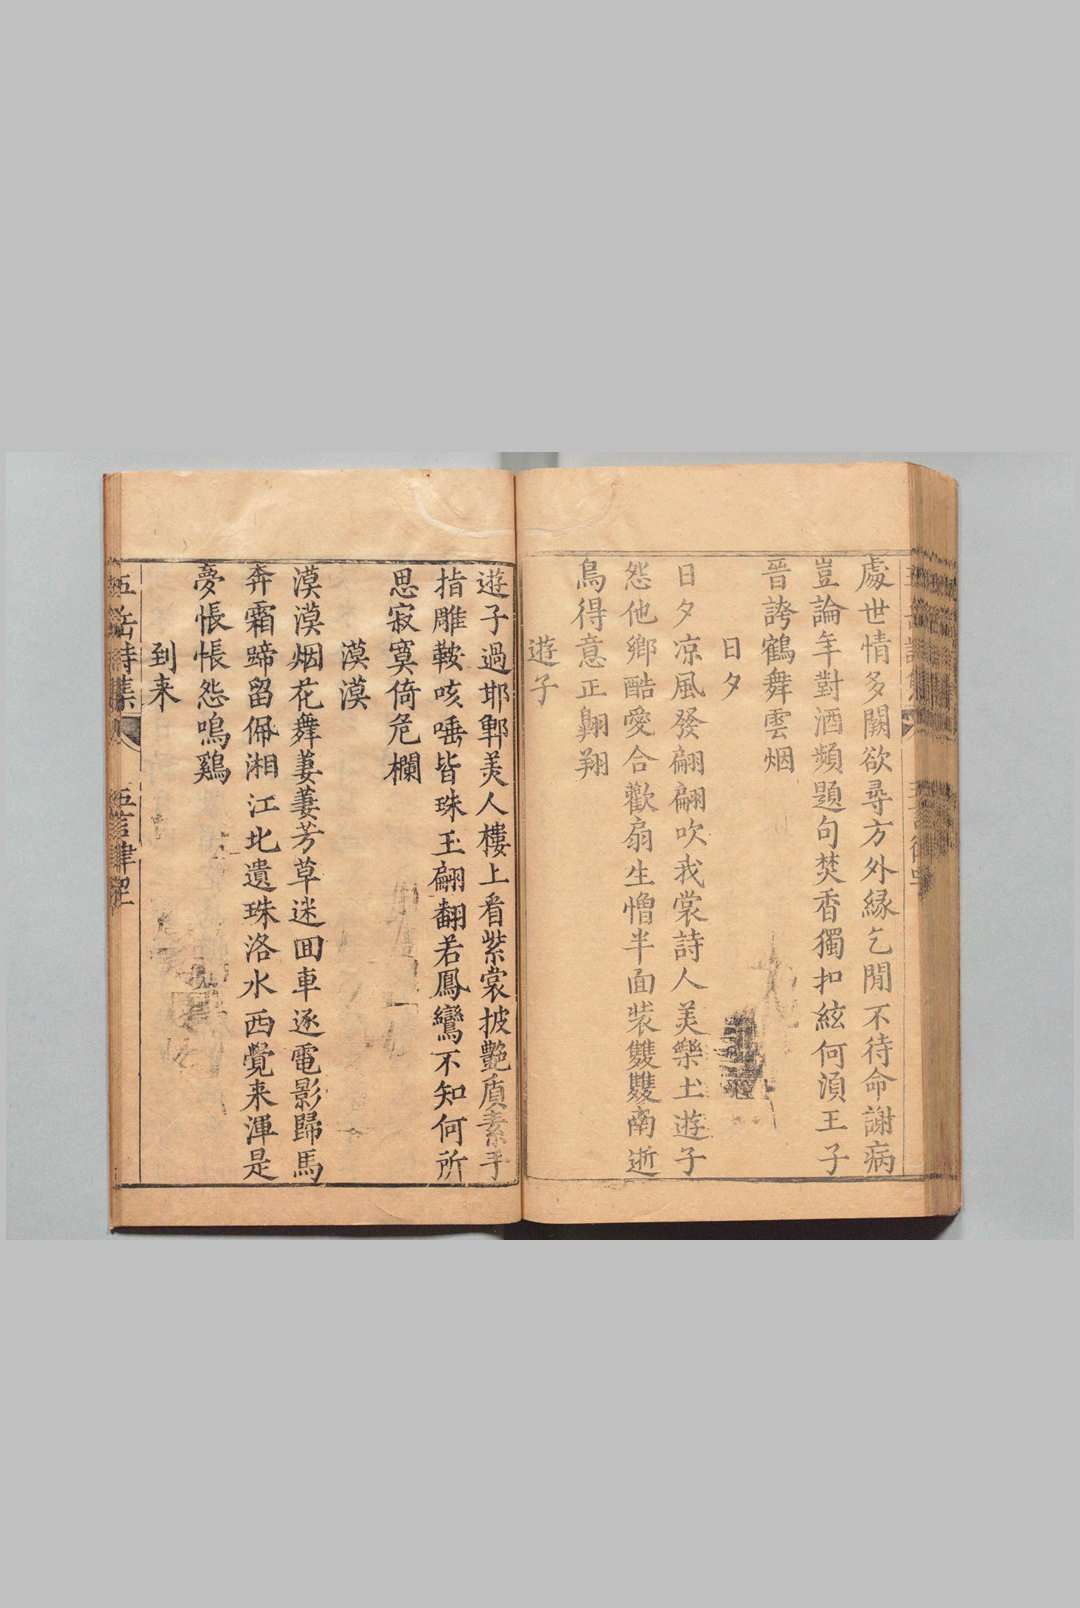 處世情多闕欲尋方外緣乞閒不待命謝病
豈論年對酒頻題句焚香獨扣絃何湏王子
晉誇鶴舞雲烟
日夕
日夕凉風發翩翩吹我裳詩人美樂土遊子
怨他鄉酷愛合歡扇生憎半面裝雙雙南逝
鳥得意正翺翔
遊子
遊子過邯鄲美人樓上看紫裳披艶質素手
指雕鞍咳唾皆珠玉翩翻若鳳鸞不知何所
思寂寞倚危欄
漠漠
漠漠烟花舞萋萋芳草迷囬車逐電影歸馬
奔霜蹄留佩湘江北遺珠洛水西覺来渾是
夢悵悵怨鳴鷄
到来
五岳詩集 五言律